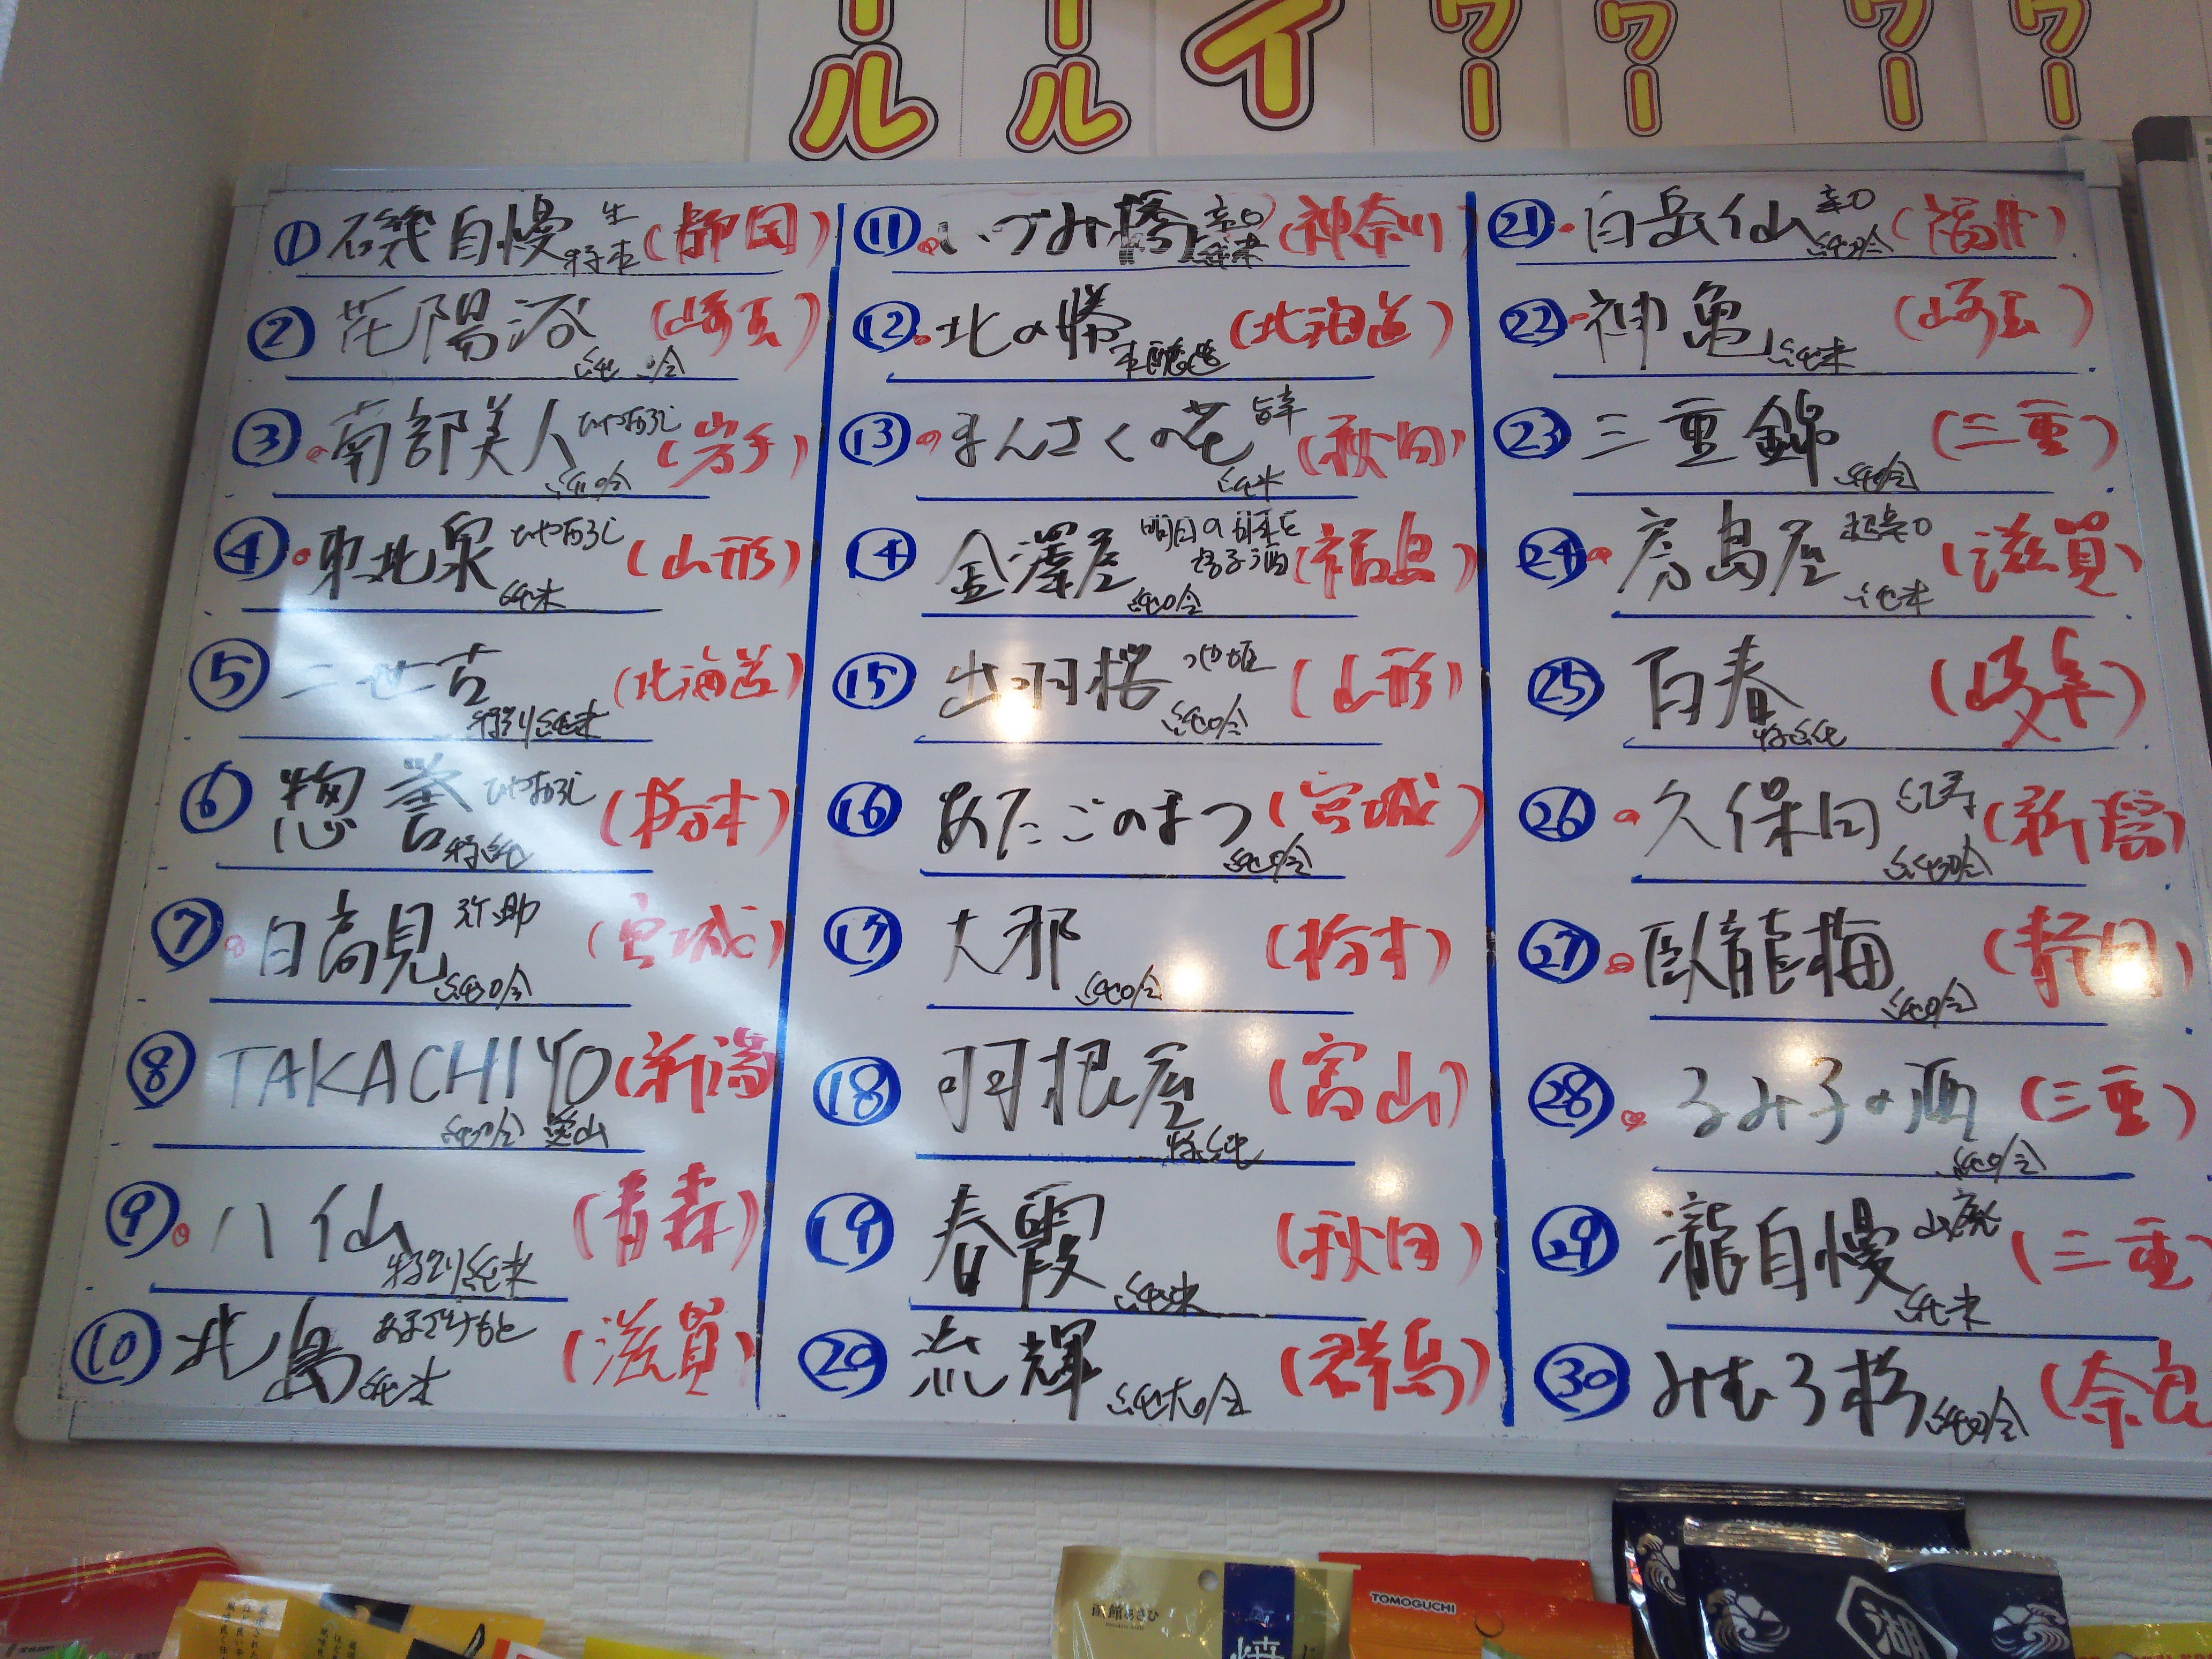 ール
ール
イ
ワー
ワー
ワー
ワー
① 磯自慢 生 特本 (静岡)
② 花陽浴 純吟 (埼玉)
③ 南部美人 ひやおろし 純吟 (岩手)
④ 東北泉 ひやおろし 純米 (山形)
⑤ 二世古 特別純米 (北海道)
⑥ 惣誉 ひやおろし 特純 (栃木)
⑦ 日高見 弥助 純吟 (宮城)
⑧ TAKACHIYO 純吟 (新潟)
⑨ 八仙 特別純米 (青森)
⑩ 北島 純米 (滋賀)
⑪ いづみ橋 辛口 純米 (神奈川)
⑫ 北の勝 本醸造 (北海道)
⑬ まんさくの花 旨辛 純米 (秋田)
⑭ 金澤屋 明日の 純吟 (福島)
⑮ 出羽桜 つや姫 純吟 (山形)
⑯ あたごのまつ 純吟 (宮城)
⑰ 大那 純吟 (栃木)
⑱ 羽根屋 特純 (富山)
⑲ 春霞 純米 (秋田)
⑳ 流輝 純大吟 (群馬)
㉑ 白岳仙 辛口 純吟 (福井)
㉒ 神亀 純米 (埼玉)
㉓ 三重錦 純吟 (三重)
㉔ 房島屋 超辛口 純米 (滋賀)
㉕ 百春 特純 (岐阜)
㉖ 久保田 紅寿 純吟 (新潟)
㉗ 臥龍梅 純吟 (静岡)
㉘ るみ子の酒 純吟 (三重)
㉙ 瀧自慢 山廃 純米 (三重)
㉚ みむろ杉 純吟 (奈良
函館あさひ
TOMOGUCHI
焼
湖